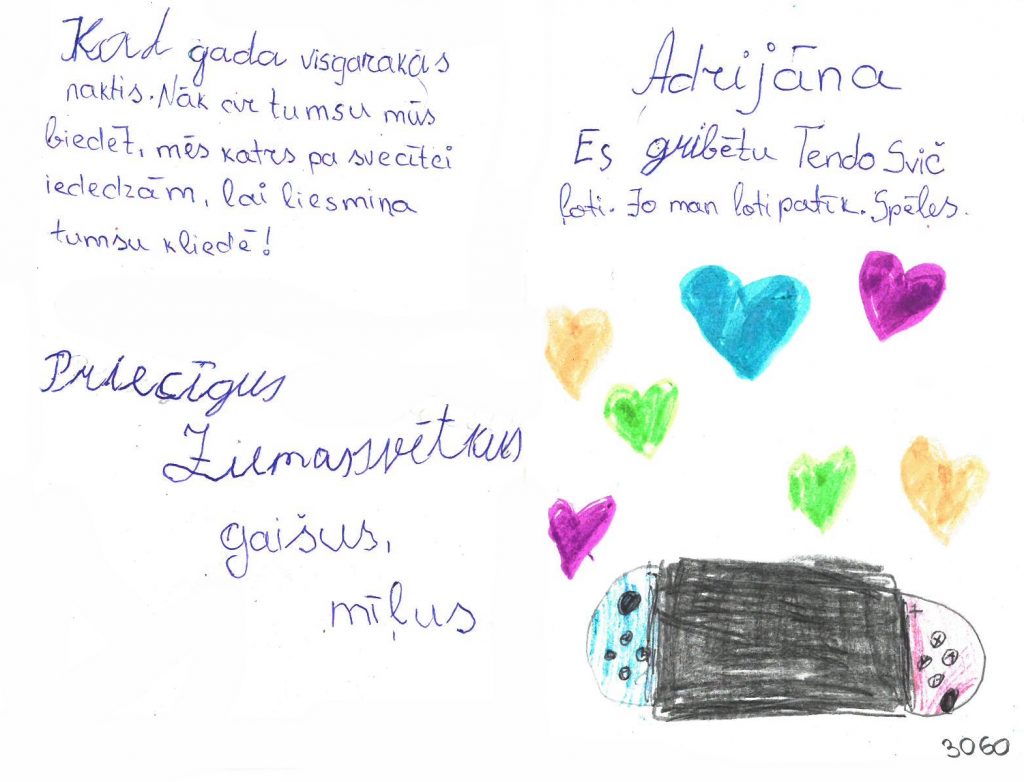 Kad gada visgarakās
naktis. Nāk ar tumsu mūs
biedēt, mēs katrs pa svecītei
iededzām, lai liesmiņa
tumsu kliedē!
Priecīgus
Ziemassvētkus
gaišus,
mīļus
Adrijāna
Es gribētu Tendo Svič
ļoti. Jo man ļoti patīk. Spēles.
3060